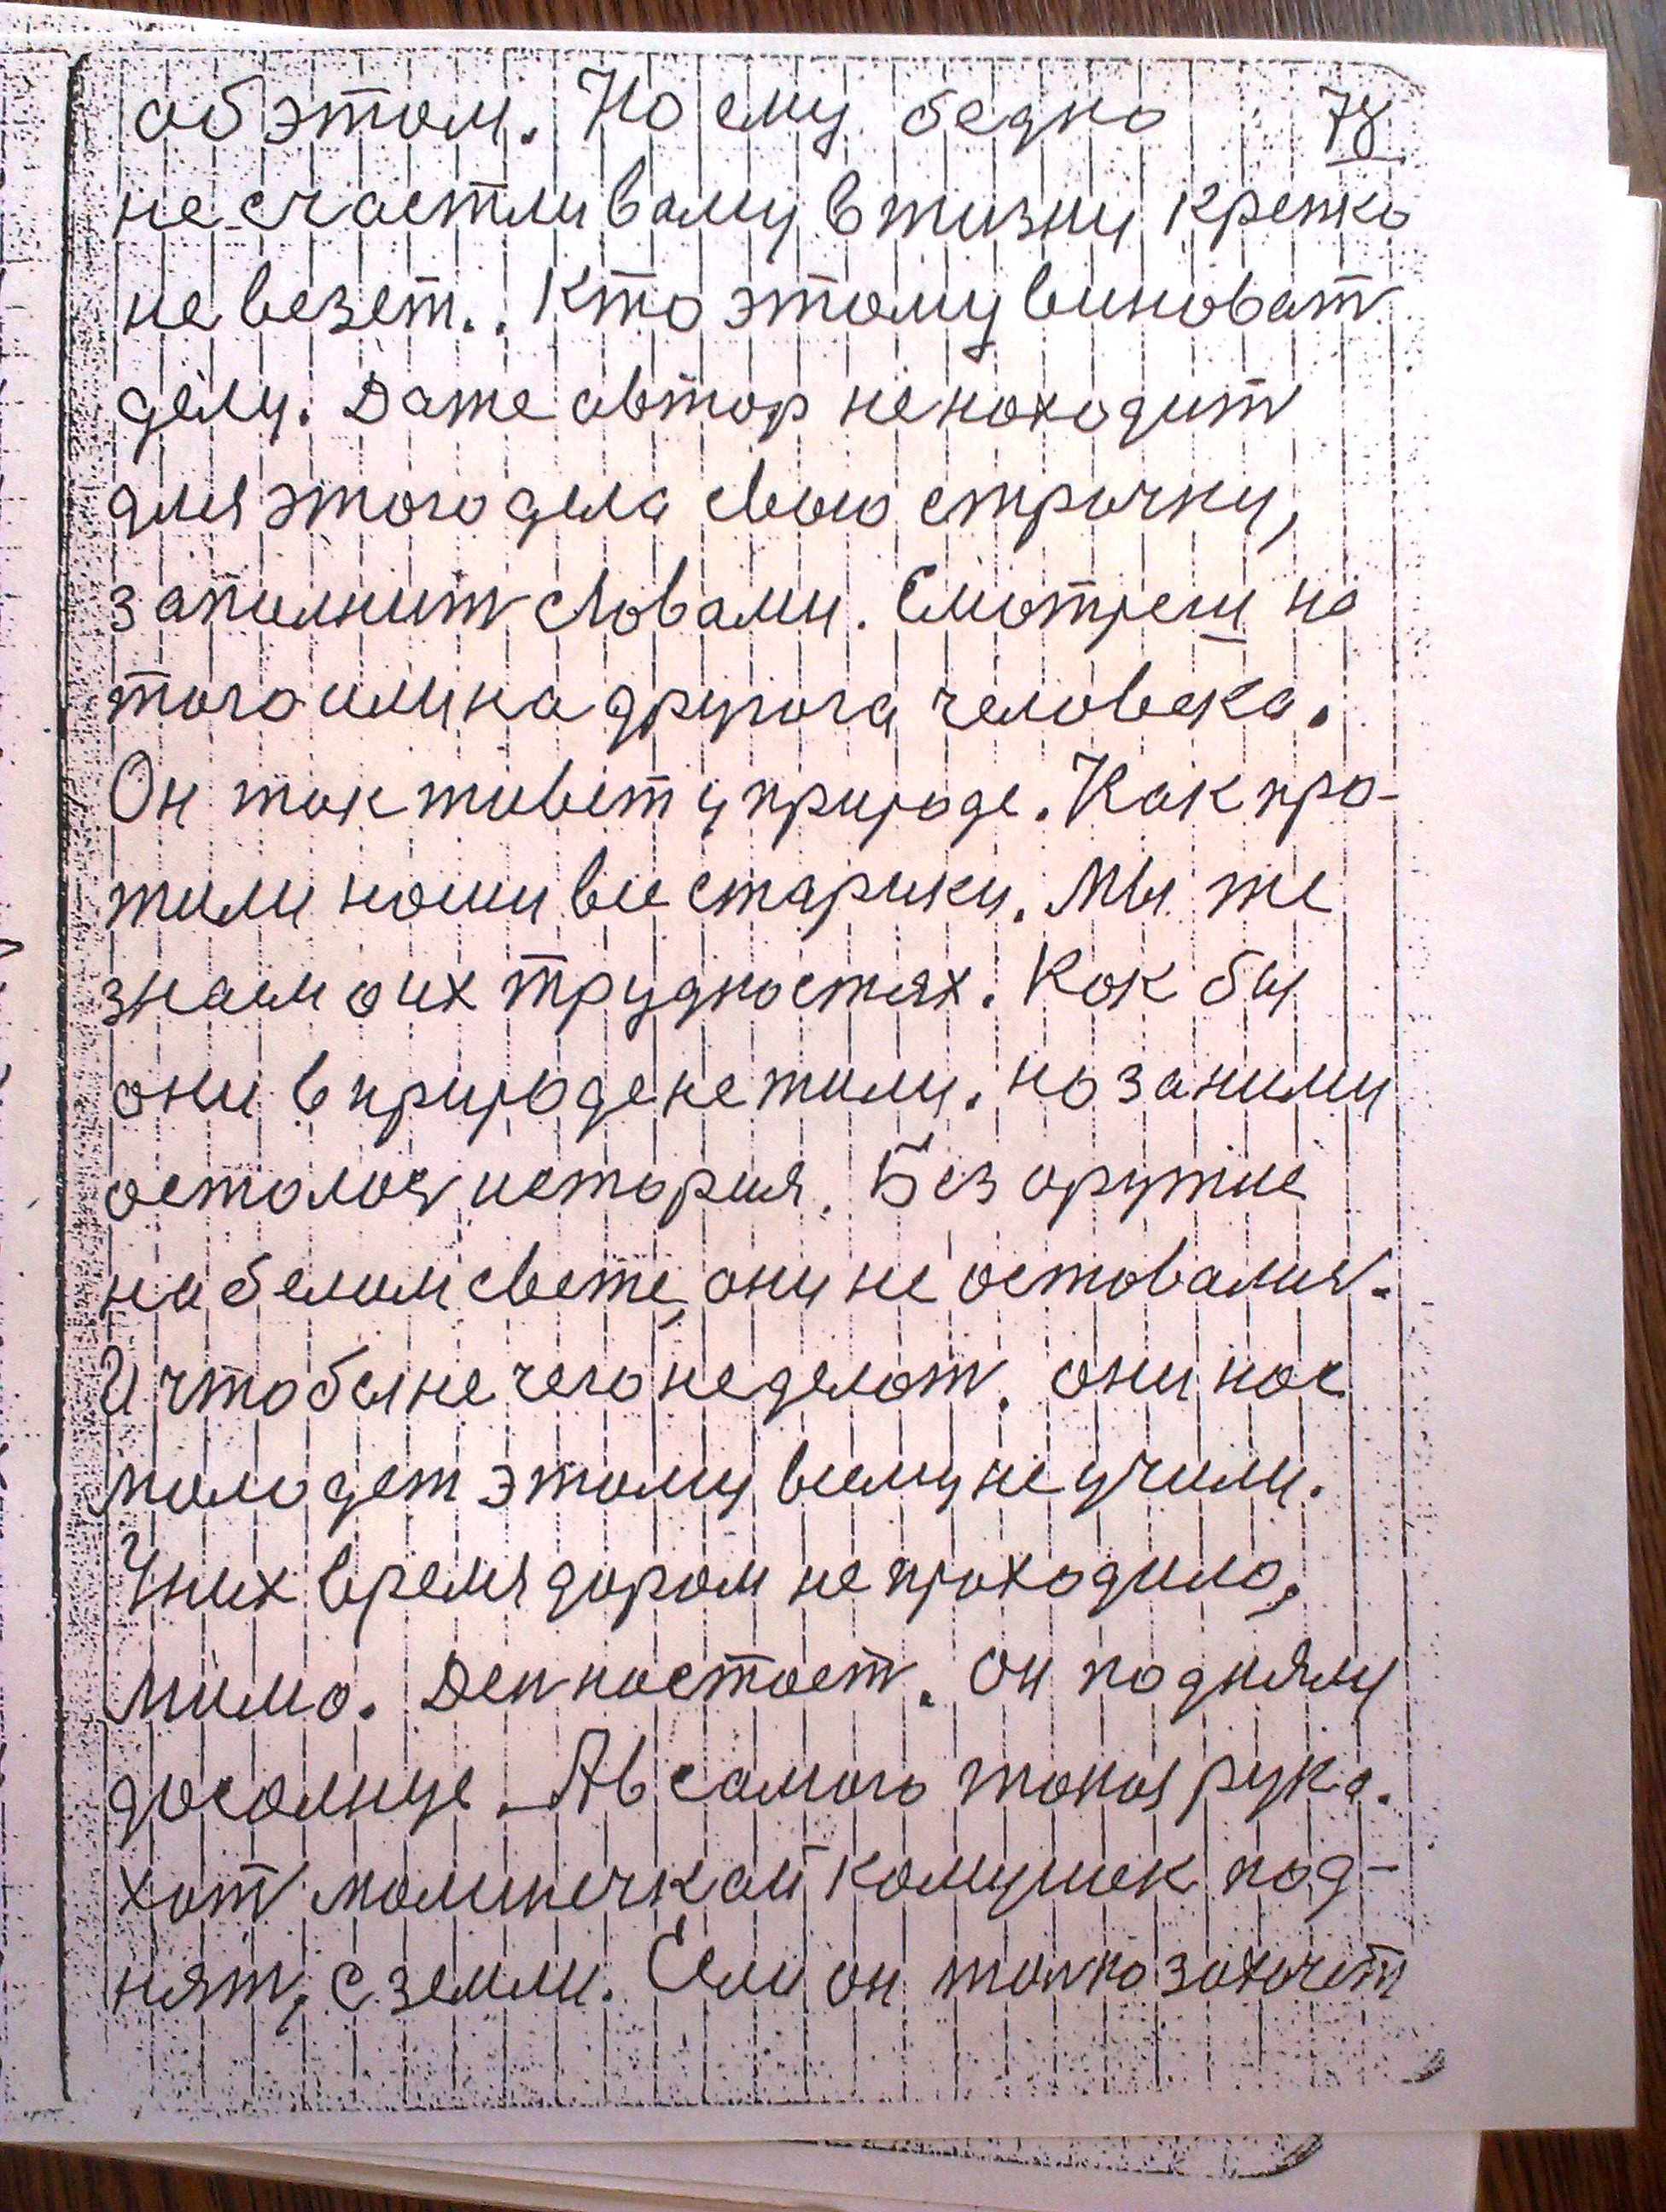 об этом. Но ему бедно 78
не счастливому в жизни крепко
не везет.. Кто этому виноват
делу. Даже автор не находит
для этого дела свою строчку,
заполнит словами. Смотреш на
того или на другога человека.
Он так живет у природе. Как про-
жили наши все старики. Мы же
знаем о их трудностях. Как бы
они в природе не жили. но за ними
осталося история. Без оружие
на белом свете, они не оставалися.
И чтобы не чего не делат. они нас
молодеж этому всему не учили.
У них время даром не проходило,
мимо. Ден настает. Он подняли
до солнце. А в самого такая рука.
хот малинечкай комушек под-
нят, с земли. Если он толко захочет